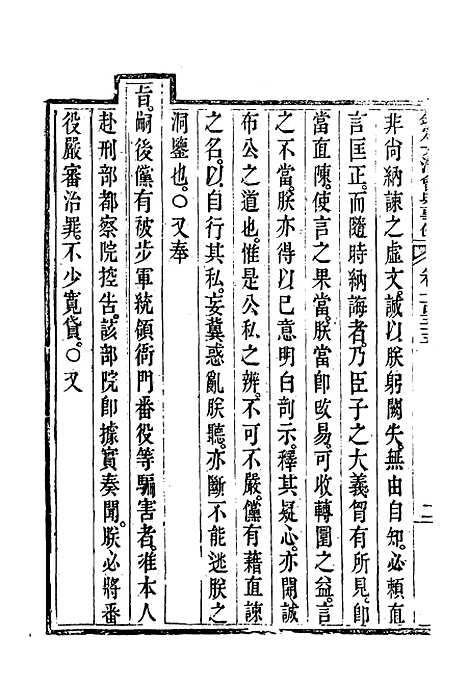 非尙納諫之虛文。誠以朕躬闕失。無由自知。必賴直
言匡正。而隨時納誨者。乃臣子之大義。胷有所見。卽
當直陳。使言之果當。朕當卽改易。可收轉圜之益。言
之不當。朕亦得以己意明白剖示。釋其疑心。亦開誠
布公之道也。惟是公私之辨。不可不嚴。儻有藉直諫
之名。以自行其私。妄冀惑亂朕聽。亦斷不能逃朕之
洞鑒也。○又奉
旨。嗣後儻有被步軍統領衙門番役等騙害者。准本人
赴刑部都察院控告。該部院卽據實奏聞。朕必將番
役嚴審治罪。不少寬貸。○又